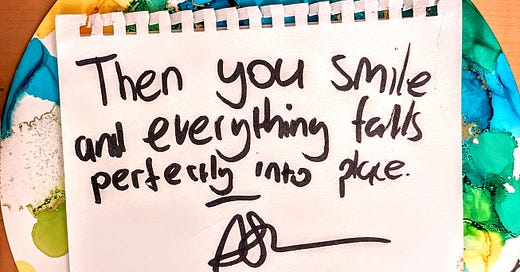 Then you smile
and everything falls
perfectly into place.